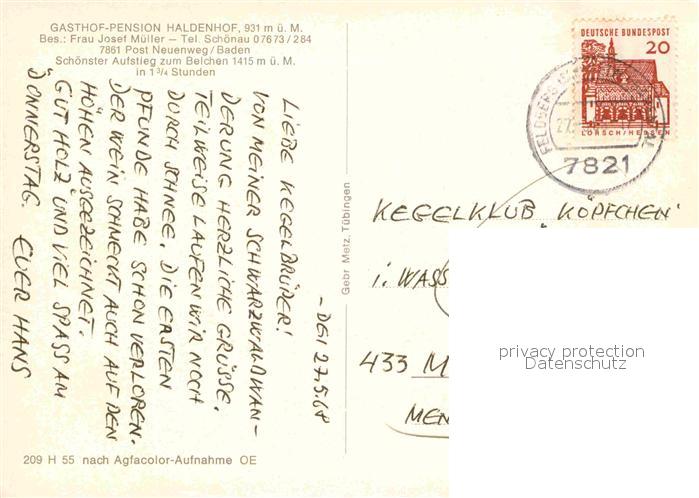 GASTHOF-PENSION HALDENHOF, 931 m ü. M.
Bes.: Frau Josef Müller – Tel. Schönau 07673/284
7861 Post Neuenweg/Baden
Schönster Aufstieg zum Belchen 1415 m ü. M.
in 1 3/4 Stunden
27.5.68
LIEBE KEGELBRÜDER!
VON MEINER SCHWARZWALDWAN-
DERUNG HERZLICHE GRÜSSE.
TEILWEISE LAUFEN WIR NOCH
DURCH SCHNEE. DIE ERSTEN
PFUNDE HABE SCHON VERLOREN.
DER WEIN SCHMECKT AUCH AUF DEN
HÖHEN AUSGEZEICHNET.
"GUT HOLZ" UND VIEL SPASS AM
DONNERSTAG. EUER HANS
209 H 55 nach Agfacolor-Aufnahme OE
Gebr. Metz, Tübingen
DEUTSCHE BUNDESPOST
20
LORSCH/HESSEN
FELDBERG
27.
7821
KEGELKLUB "KÖPFCHEN"
i. WASS
433 M
MEN
privacy protection
Datenschutz